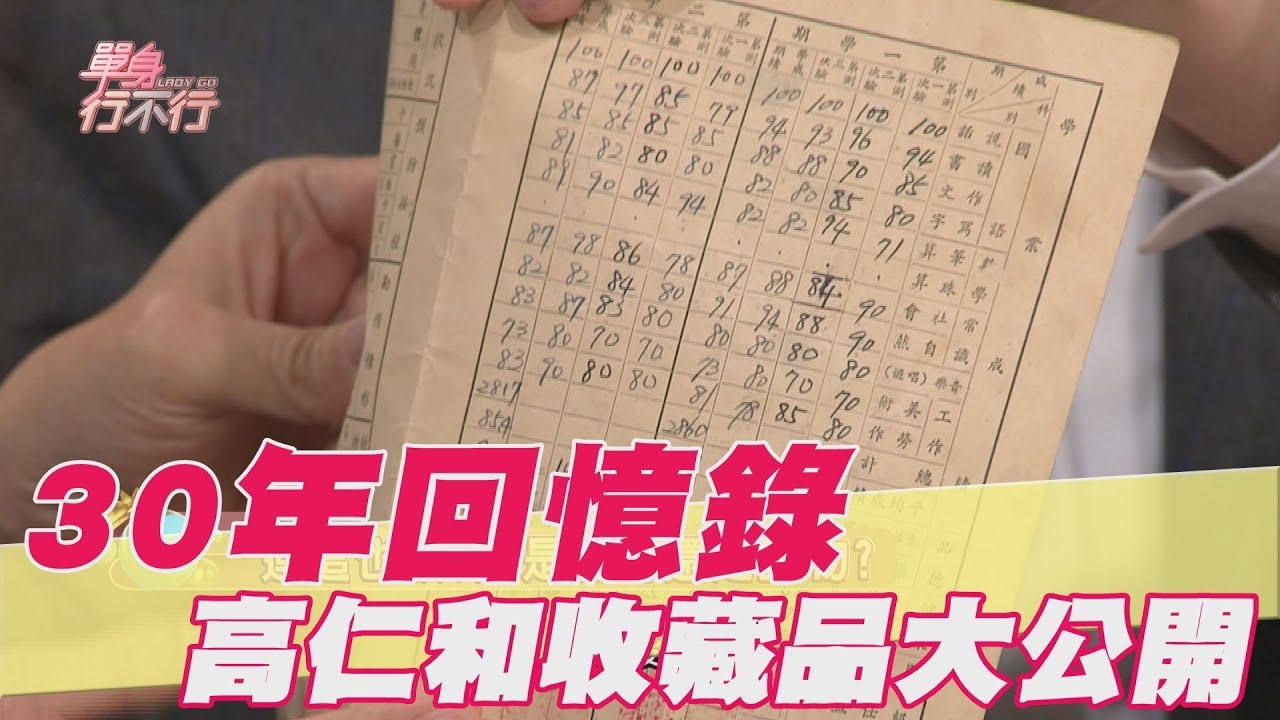 單身行不行
LADY GO
第二學
第一學期
成績 第三次測驗 第二次測驗 第一次測驗 學期成績 第三次測驗 第二次測驗 第一次測驗 期別 成績 科別
學業成績
國語
算學
常識
工作
100 100 100 100 100 100 100 100 說話
87 77 85 79 94 93 96 94 讀書
85 85 85 85 88 88 90 85 作文
81 82 80 80 82 80 85 80 寫字
89 90 84 94 82 82 74 71 筆算
珠算
87 98 86 78 87 88 84 90 社會
82 82 84 80 91 94 88 90 自然
83 87 83 80 80 80 80 80 音樂(唱遊)
73 80 70 70 73 80 70 70 美術
83 90 80 80 81 78 85 80 勞作
2817 2860 總計
854 平均
30年回憶錄
高仁和收藏品大公開